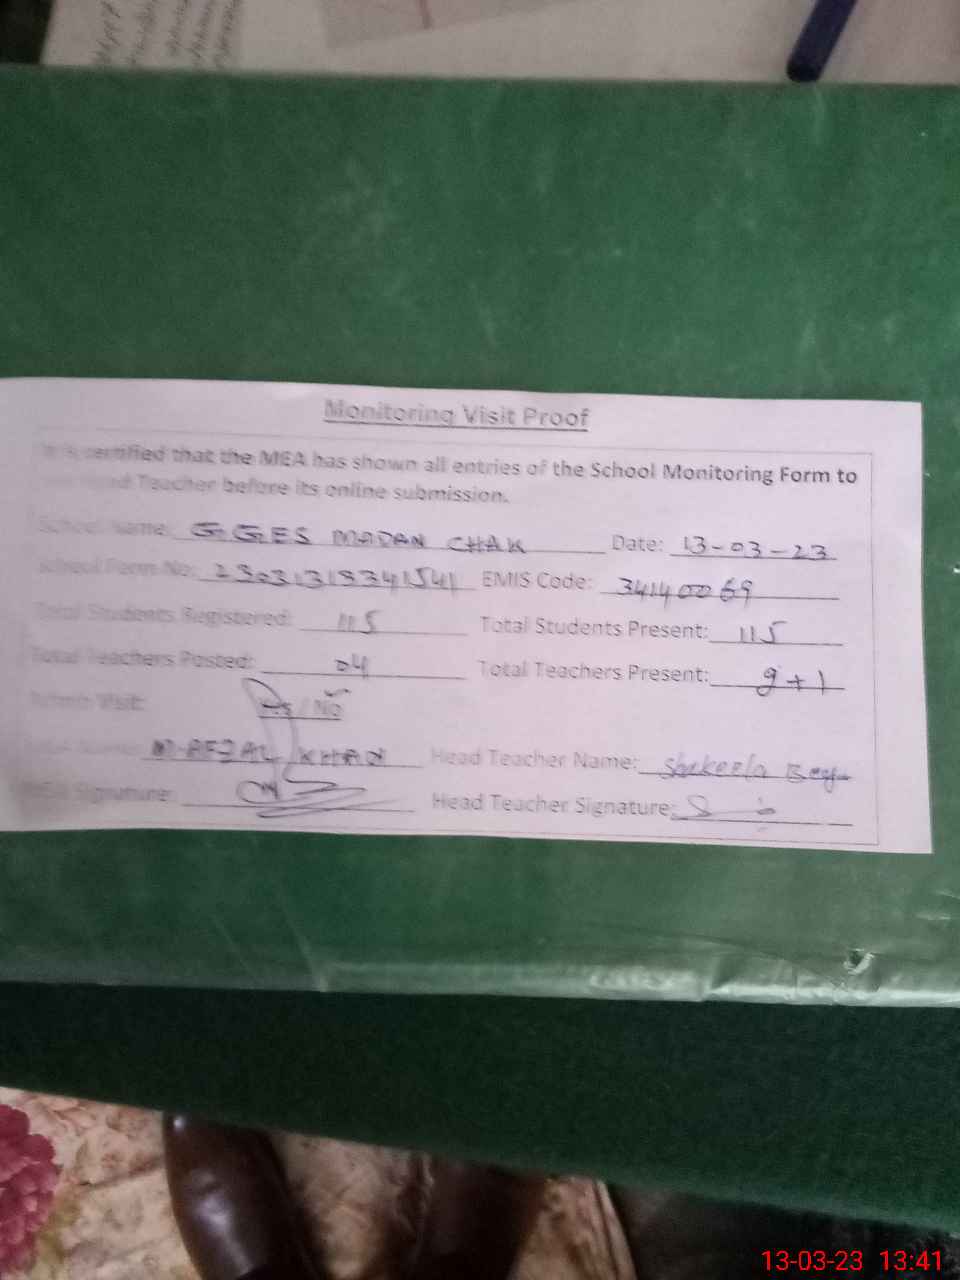 Monitoring Visit Proof
certified that the MEA has shown all entries of the School Monitoring Form to
Head Teacher before its online submission.
School Name: GGES MADAN CHAK Date: 13-03-23
School Form No: EMIS Code: 34140069
Total Students Registered: 115 Total Students Present: 115
Total Teachers Posted: 04 Total Teachers Present: +1
Visit: Yes / No
KHAN Head Teacher Name: Shakeela
MEA Signature: Head Teacher Signature:
13-03-23 13:41